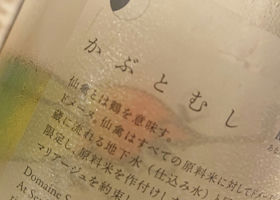 かぶとむし
仙禽とは鶴を意味す。
ドメーヌ。仙禽はすべての原料米に対して
蔵に流れる地下水（仕込み水）と
限定し、原料米を作付けした
マリアージュを約束し
Domaine S
At Se